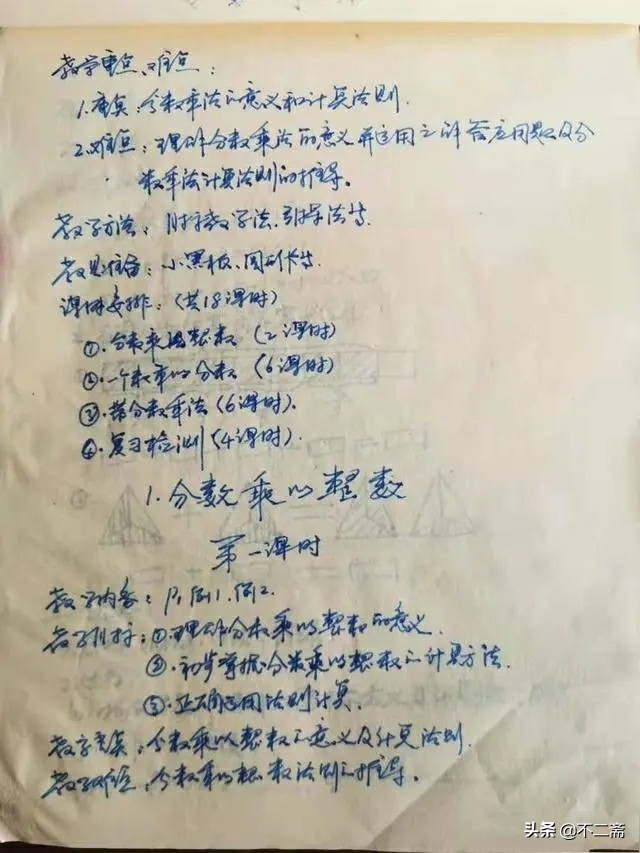 教学重点、难点：
1.重点：分数乘法的意义和计算法则.
2.难点：理解分数乘法的意义并运用之解答应用题及分
数乘法计算法则的推导。
教学方法：教学法、引导法等.
教具准备：小黑板、图形卡等.
课时安排：(共18课时)
①.分数乘以整数 (2课时)
②.一个数乘以分数 (6课时)
③.带分数乘法 (6课时).
④.复习检测 (4课时).
1.分数乘以整数
第一课时
教学内容：P1例1.例2.
教学目标：①.理解分数乘以整数的意义.
②.初步掌握分数乘以整数的计算方法.
③.正确运用法则计算.
教学重点：分数乘以整数的意义及计算法则.
教学难点：分数乘以整数法则的推导。
头条@不二斋